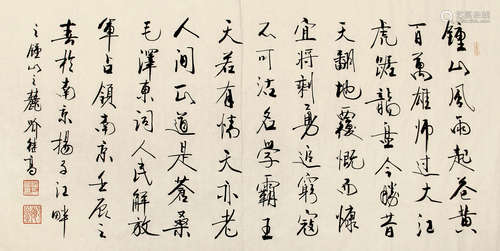 鍾山風雨起蒼黃
百萬雄師過大江
虎踞龍盤今勝昔
天翻地覆慨而慷
宜將剩勇追窮寇
不可沽名學霸王
天若有情天亦老
人间正道是蒼桑
毛澤東詞人民解放
軍占領南京壬辰之
春於南京揚子江畔
之鍾山之麓